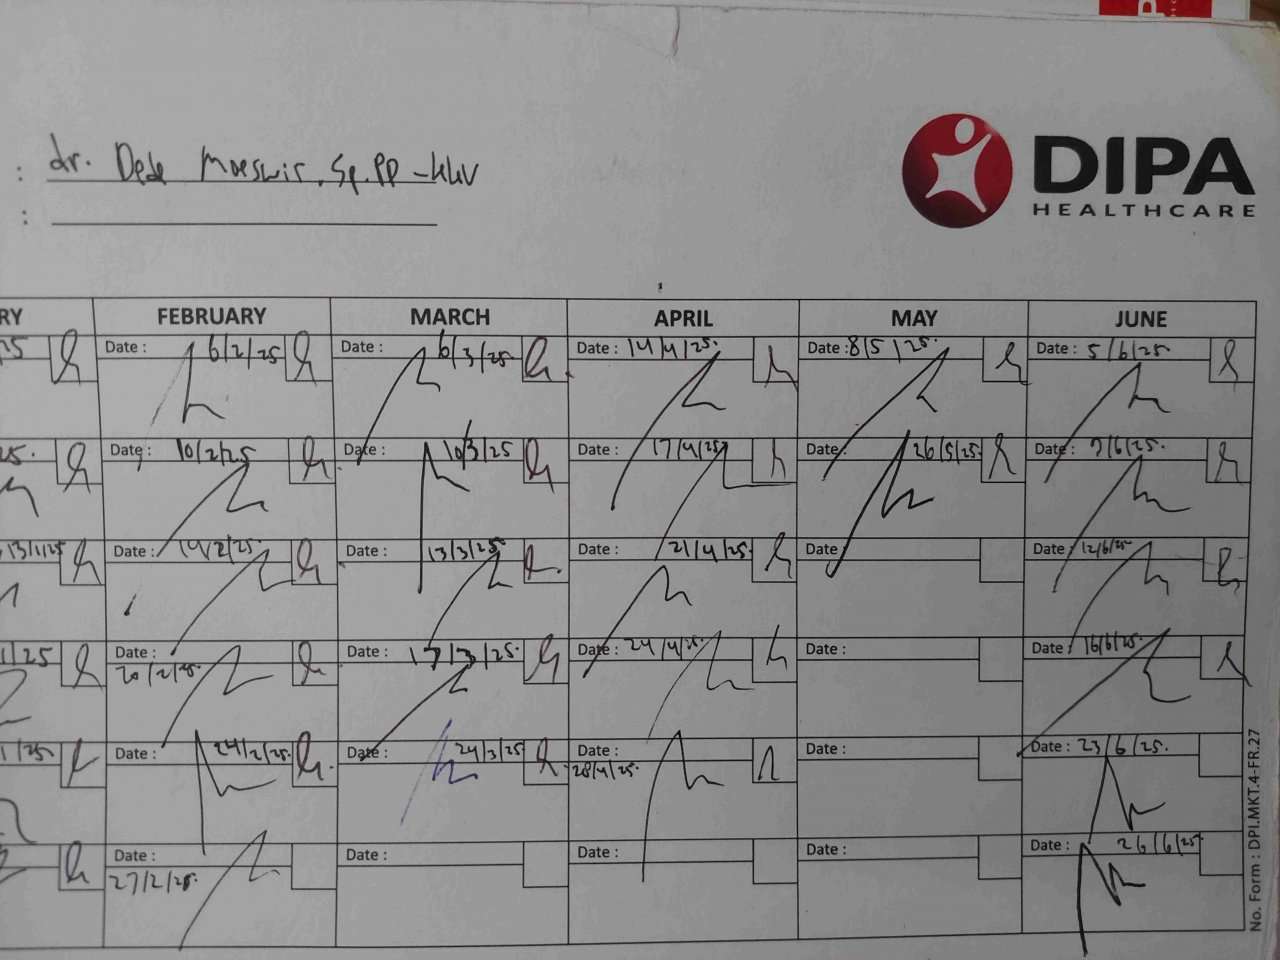 : dr. Dede Moeswir. Sp.PD-KKV
:
DIPA
HEALTHCARE
RY FEBRUARY MARCH APRIL MAY JUNE
25 Date : 6/2/25 Date : 6/3/25. Date : 14/4/25. Date : 8/5/25. Date : 5/6/25.
25. Date : 10/2/25 Date : 10/3/25 Date : 17/4/25 Date : 26/5/25. Date : 9/6/25.
13/1/25 Date : 14/2/25. Date : 13/3/25. Date : 21/4/25. Date : Date : 12/6/25.
1/25 Date : 20/2/25. Date : 17/3/25. Date : 24/4/25. Date : Date : 16/6/25.
1/25. Date : 24/2/25. Date : 24/3/25 Date : 28/4/25. Date : Date : 23/6/25.
Date : 27/2/25. Date : Date : Date : Date : 26/6/25
No. Form : DPI.MKT.4-FR.27